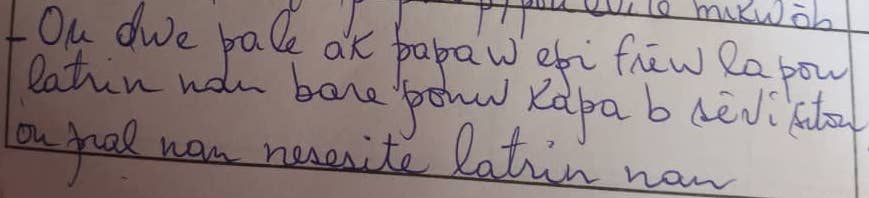 pou evite mikwòb
- Ou dwe pale ak papa w epi frèw la pou
latrin nan bare pouw kapa b sèvi sitou
ou pral nan nesesite latrin nan